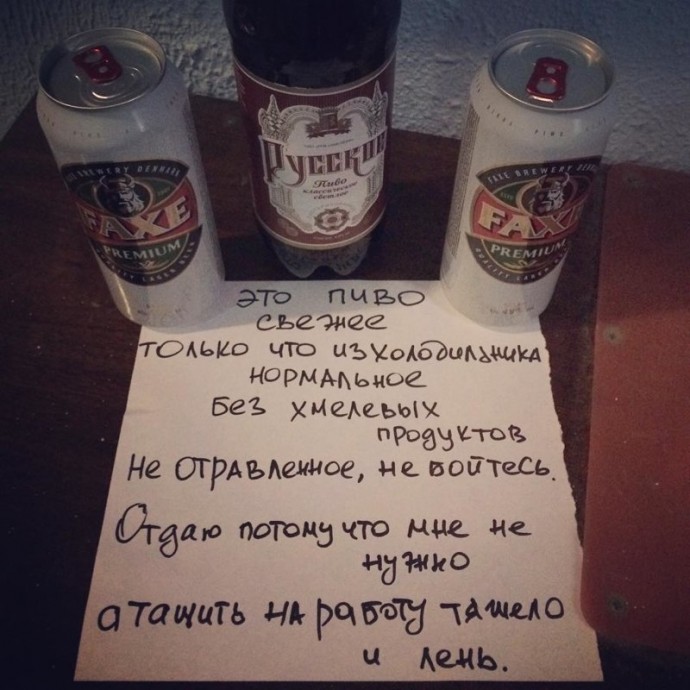 FAXE BREWERY DENMARK
FAXE
PREMIUM
QUALITY LAGER BEER
Русское
Пиво
классическое
светлое
FAXE BREWERY DENMARK
FAXE
PREMIUM
QUALITY LAGER BEER
ЭТО ПИВО
СВЕЖЕЕ
ТОЛЬКО ЧТО ИЗ ХОЛОДИЛЬНИКА
НОРМАЛЬНОЕ
БЕЗ ХМЕЛЕВЫХ
ПРОДУКТОВ
Не ОТРАВЛЕННОЕ, не бойтесь.
Отдаю потому что мне не
нужно
а тащить на работу тяжело
и лень.